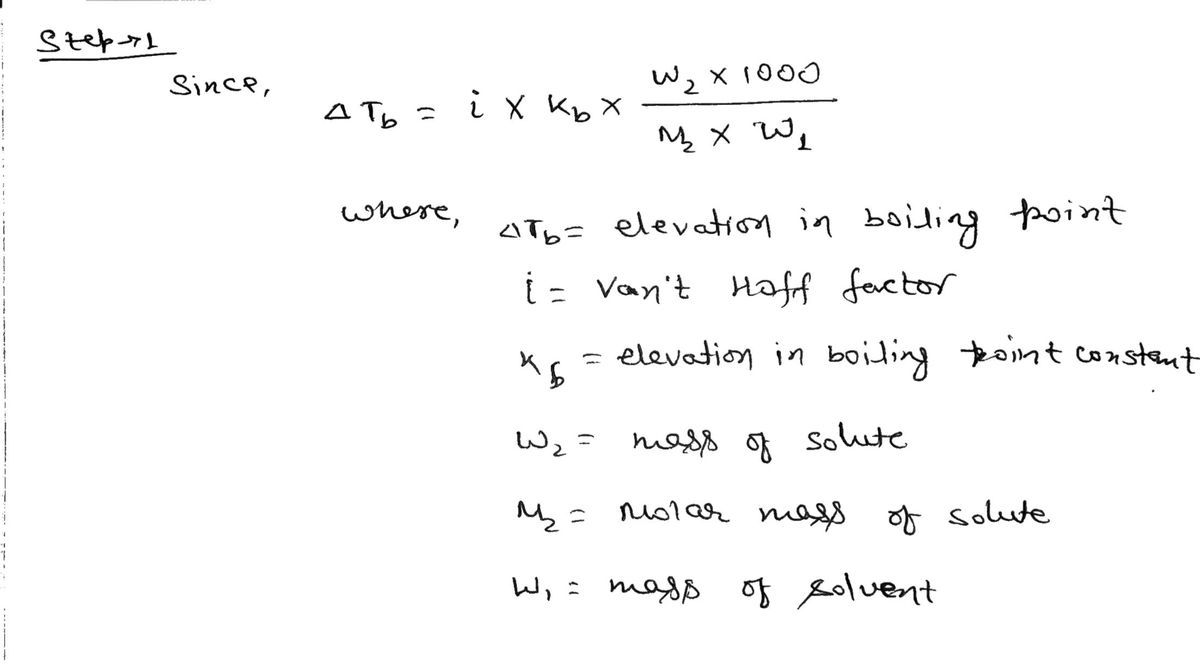 Step→1
Since,
ΔT_b = i × K_b × (W_2 × 1000) / (M_2 × W_1)
where, ΔT_b = elevation in boiling point
i = Van't Hoff factor
K_b = elevation in boiling point constant
W_2 = mass of solute
M_2 = Molar mass of solute
W_1 = mass of solvent